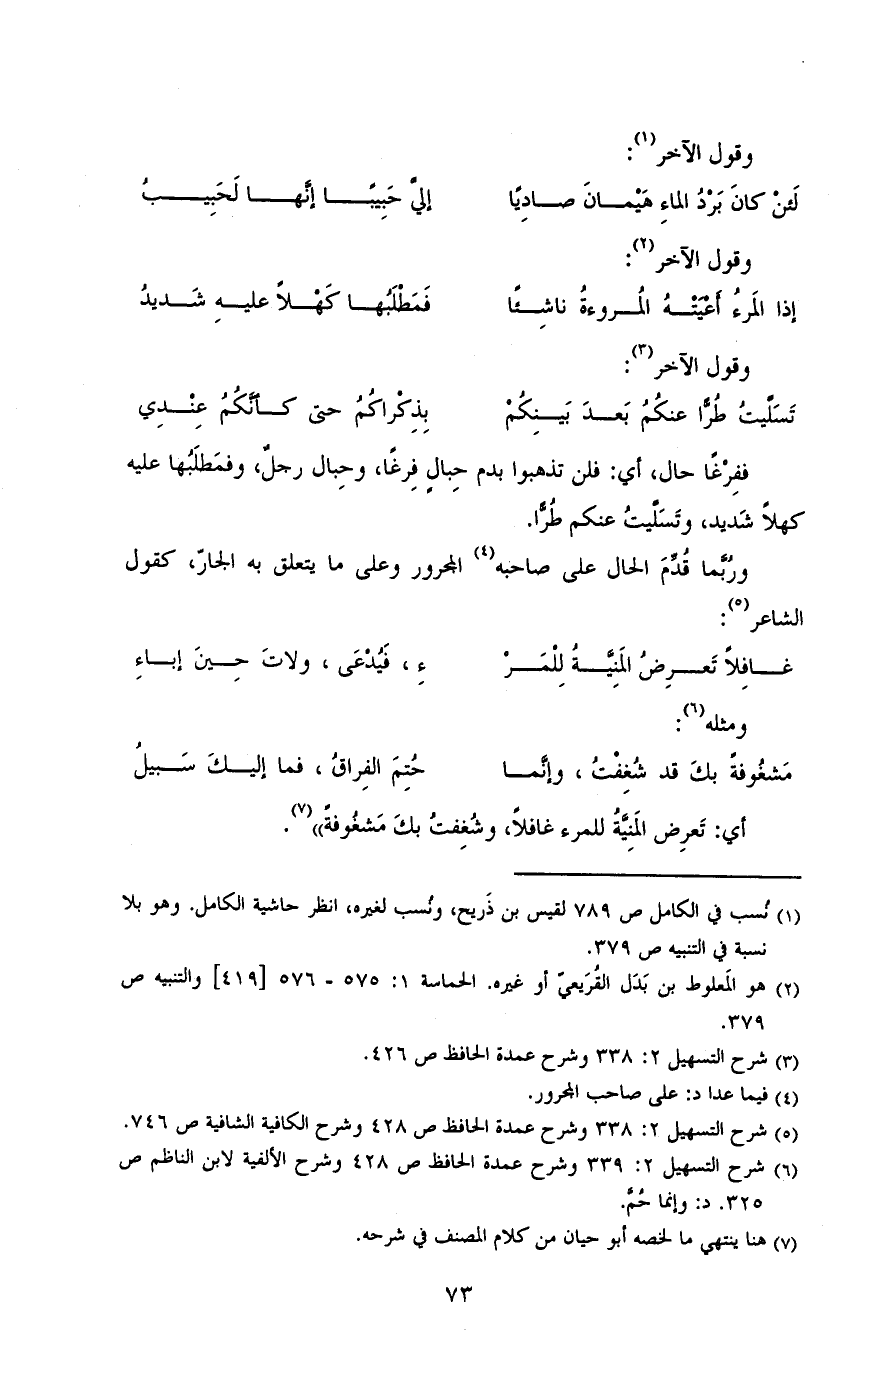 وقول الآخر(١):
لَئنْ كانَ بَرْدُ الماءِ هَيْمانَ صادِيًا إليَّ حَبِيبًا إنَّها لَحَبِيبُ
وقول الآخر(٢):
إذا المَرءُ أَعْيَتْهُ المُروءةُ ناشِئًا فَمَطْلَبُها كَهْلاً عليهِ شَديدُ
وقول الآخر(٣):
تَسَلَّيتُ طُرًّا عنكُمُ بَعدَ بَينِكُمْ بِذِكْراكُمُ حتى كأنَّكُمُ عِنْدِي
ففِرْغًا حال، أي: فلن تذهبوا بدم حِبالٍ فِرغًا، وحِبال رجلٌ، وفمَطلَبُها عليه
كهلاً شَديد، وتَسَلَّيتُ عنكم طُرًّا.
ورُبَّما قُدِّمَ الحال على صاحبه(٤) المجرور وعلى ما يتعلق به الجارّ، كقول
الشاعر(٥):
غافِلاً تَعرِضُ المَنِيَّةُ لِلْمَرْ ءِ ، فَيُدْعَى ، ولاتَ حِينَ إباءِ
ومثله(٦):
مَشغُوفةً بكَ قد شُغِفْتُ ، وإنَّما حُتِمَ الفِراقُ ، فما إليكَ سَبيلُ
أي: تَعرِض المَنِيَّةُ للمرء غافلاً، وشُغِفتُ بكَ مَشغُوفةً»(٧).
(١) نُسب في الكامل ص ٧٨٩ لقيس بن ذَريح، ونُسب لغيره، انظر حاشية الكامل. وهو بلا
نسبة في التنبيه ص ٣٧٩.
(٢) هو المَعلوط بن بَدَل القُرَيعيّ أو غيره. الحماسة ١: ٥٧٥ - ٥٧٦ [٤١٩] والتنبيه ص
٣٧٩.
(٣) شرح التسهيل ٢: ٣٣٨ وشرح عمدة الحافظ ص ٤٢٦.
(٤) فيما عدا د: على صاحب المجرور.
(٥) شرح التسهيل ٢: ٣٣٨ وشرح عمدة الحافظ ص ٤٢٨ وشرح الكافية الشافية ص ٧٤٦.
(٦) شرح التسهيل ٢: ٣٣٩ وشرح عمدة الحافظ ص ٤٢٨ وشرح الألفية لابن الناظم ص
٣٢٥. د: وإنما حُمَّ.
(٧) هنا ينتهي ما لخصه أبو حيان من كلام المصنف في شرحه.
٧٣